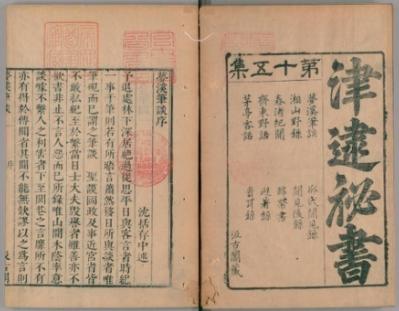 第十五集
津逮祕書
夢溪筆談
湘山野錄
春渚紀聞
齊東野語
茅亭客話
聞見後錄
汲古閣藏
夢溪筆談序
沈括存中述
予退處林下深居絕過從思平日與客言者時紀
一事于筆則若有所晤言蕭然移日所與談者唯
筆硯而已謂之筆談 聖謨國政及事近宮省皆
不敢私紀至於繫當日士大夫毀譽者雖善亦不
欲書非止不言人惡而已所錄唯山間木蔭率意
談噱不繫人之利害者下至閭巷之言靡所不有
亦有得於傳聞者其間不能無缺謬以之為言則
夢溪筆談 序 汲古閣